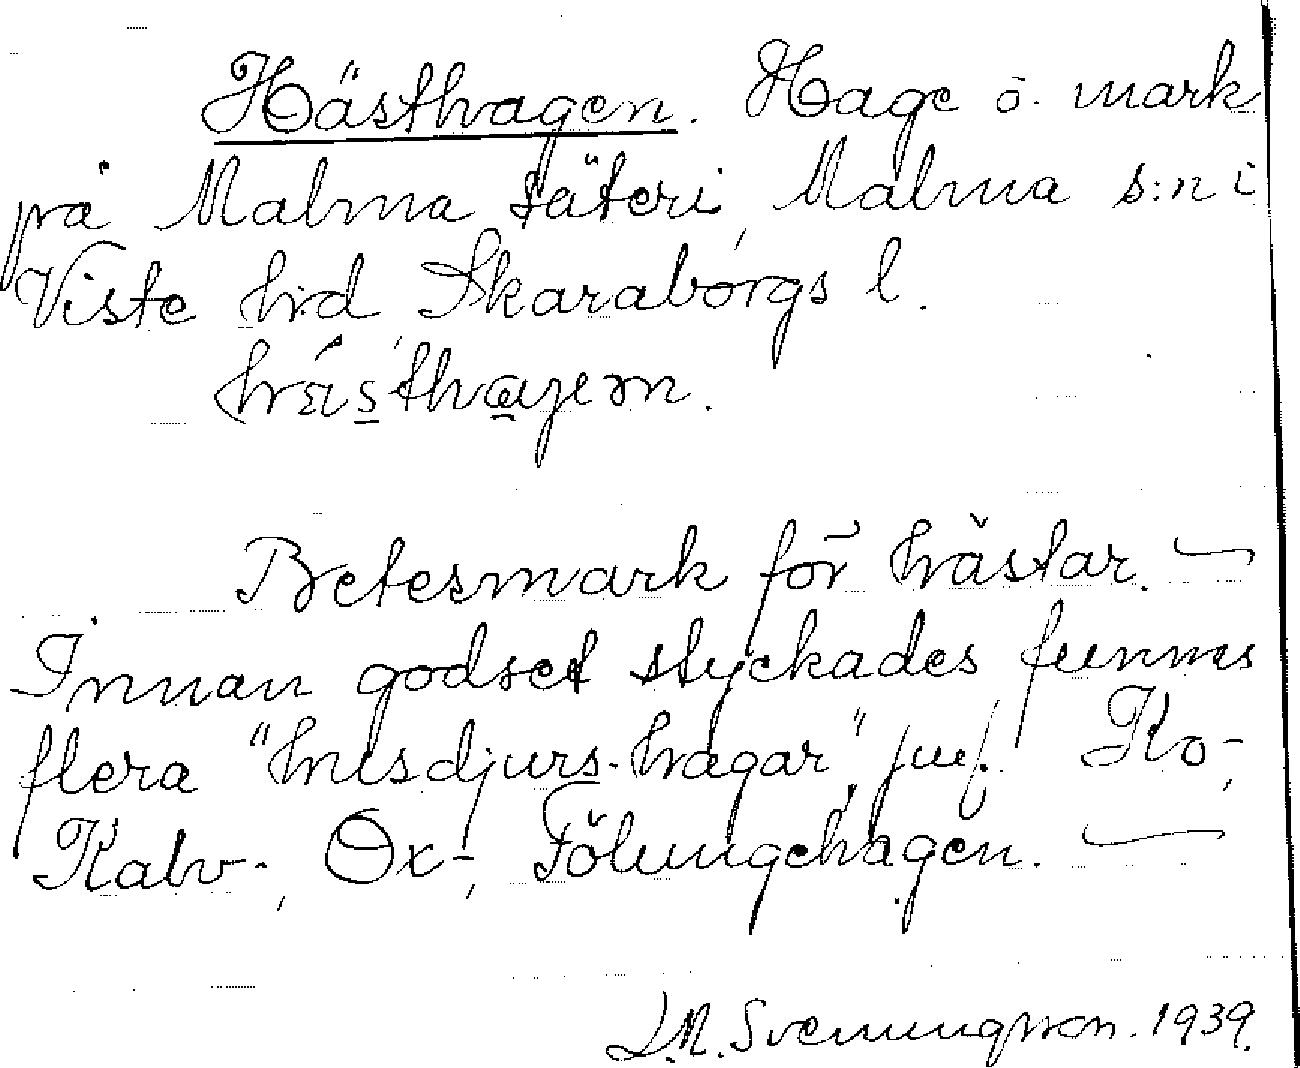 Hästhagen. Hage o. mark
på Malma säteri, Malma s:n i
Viste h:d Skaraborgs l.

Betesmark för hästar. —
Innan godset styckades funnes
flera "husdjurs-hagar", juf. Ko-,
Kalv-, Ox-, Fölungehagen. —
S. M. Svenungsson. 1939.